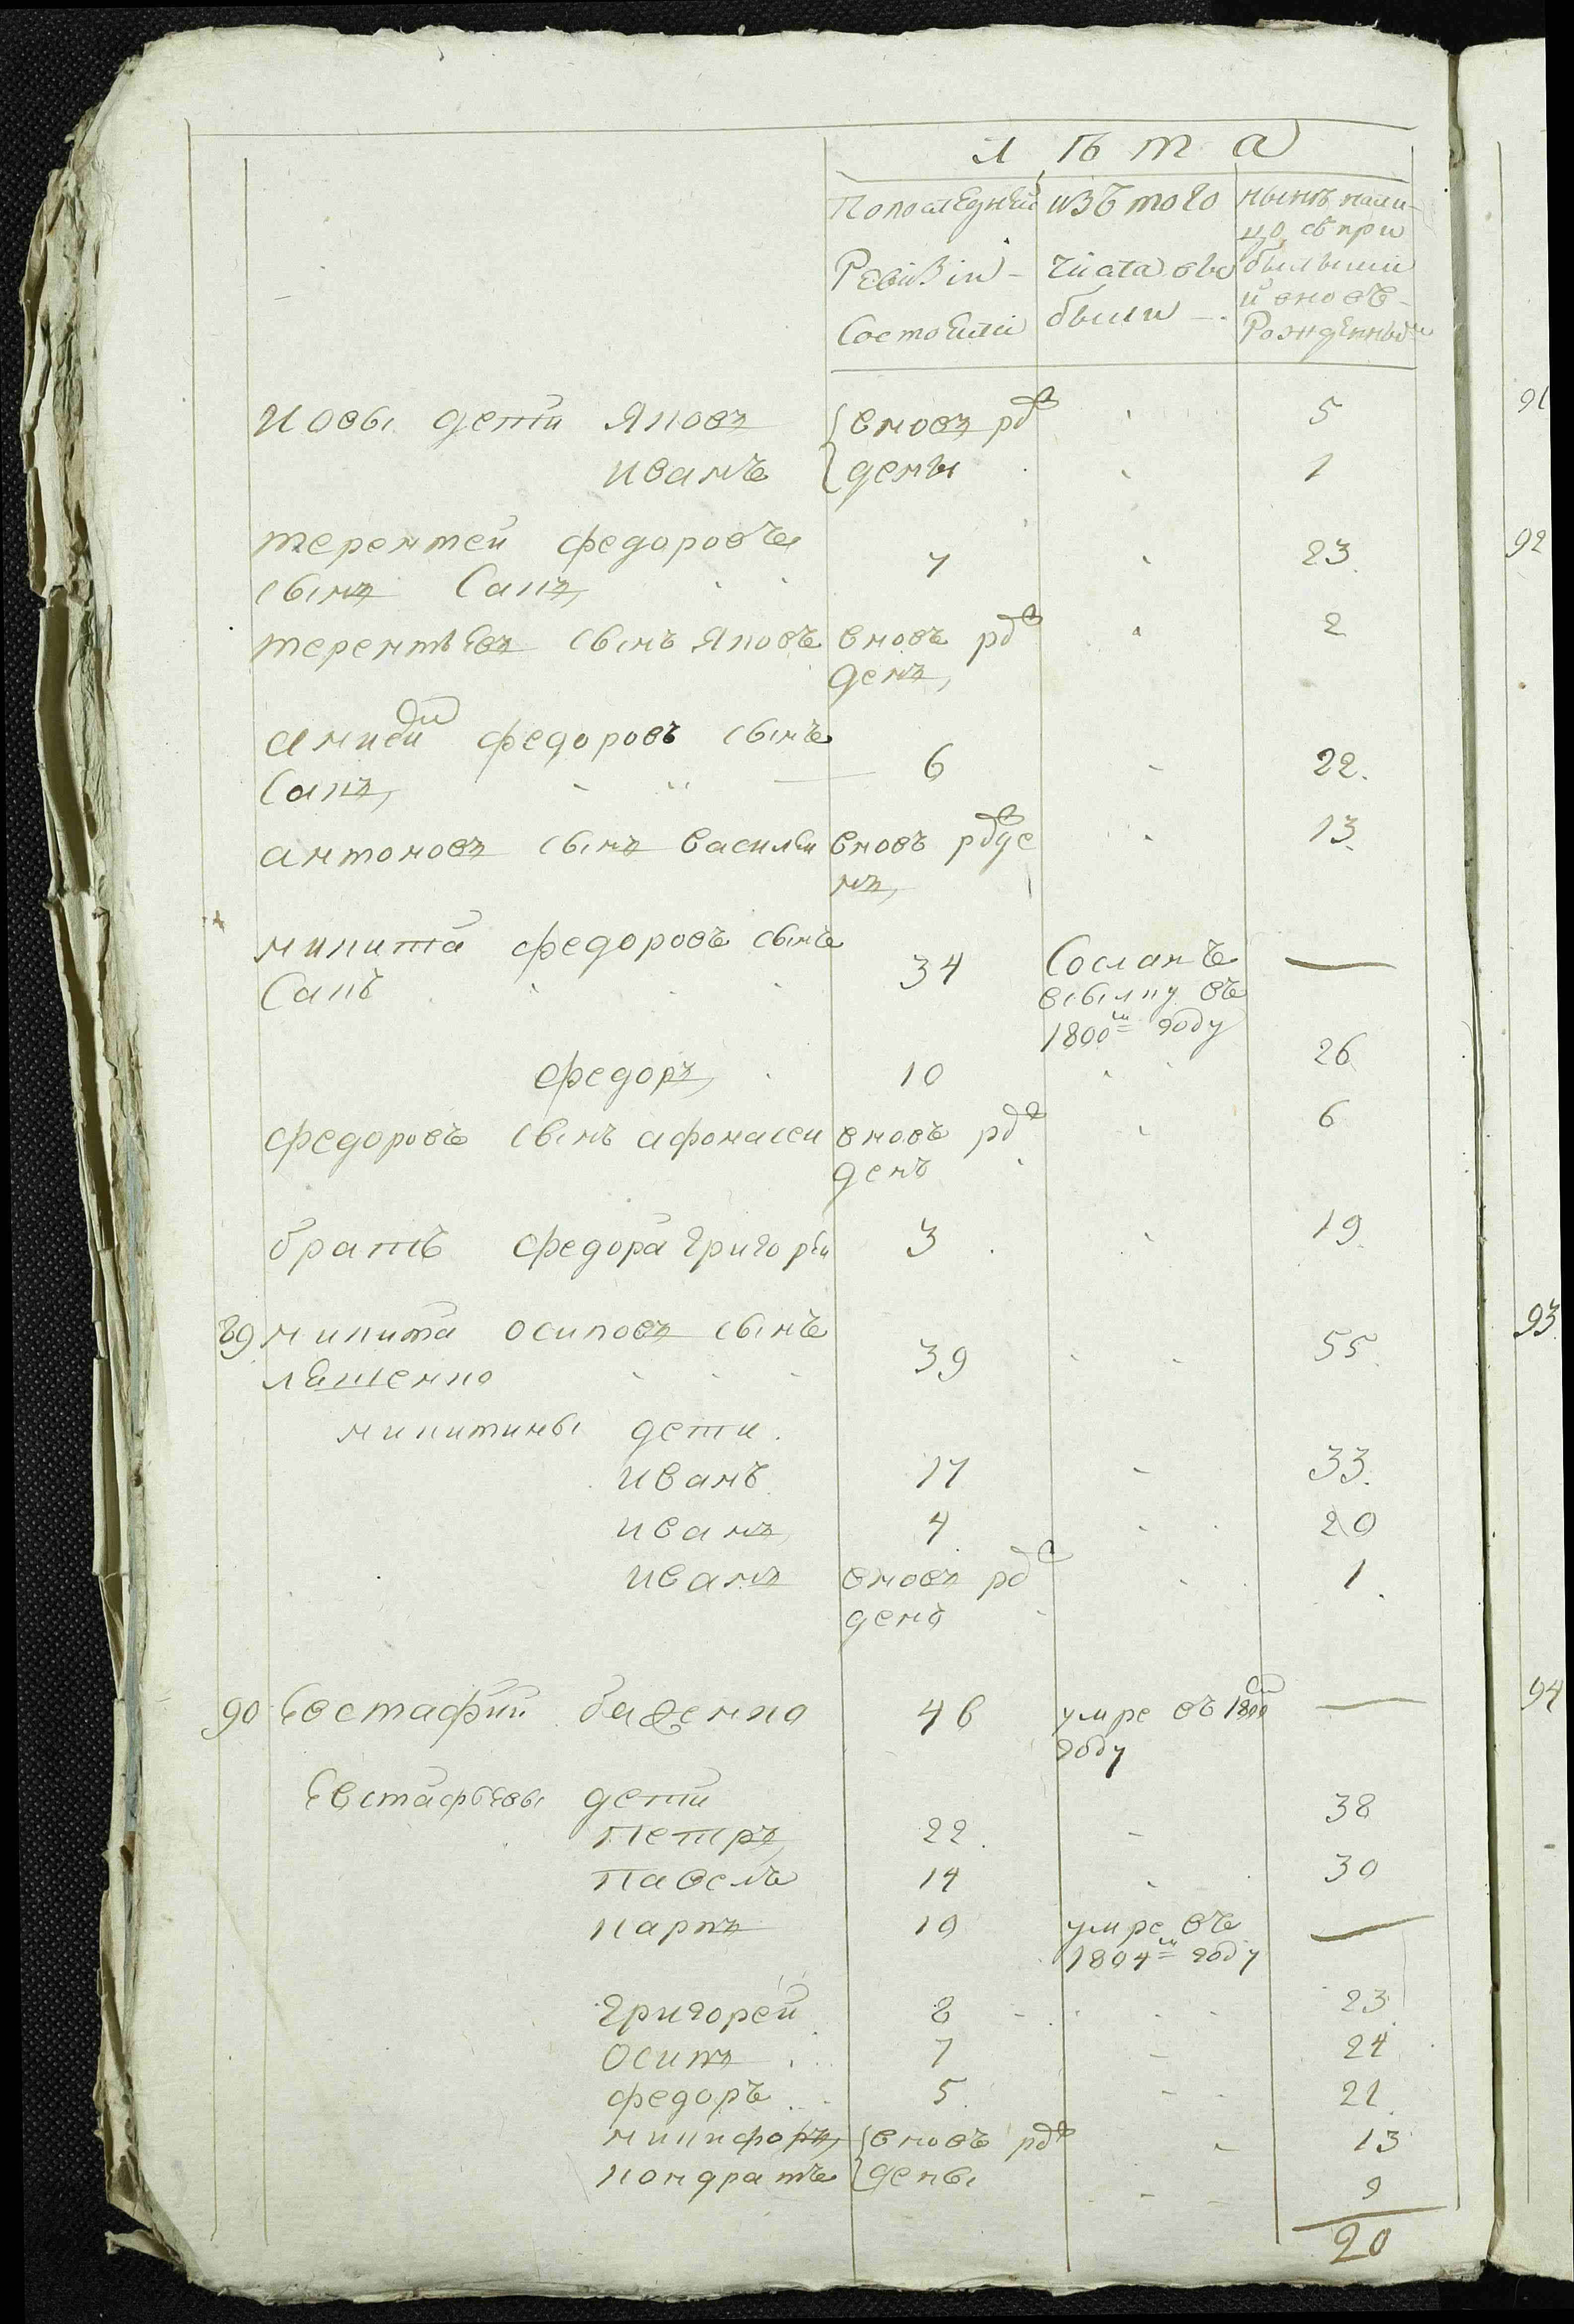 лѣта
Попоследней изъ того нынѣ нали-
цо съ при
Ревизіи - числа вы былыми
и вновь
Состояли были - рожденными
Иовы дети Яковъ {вновь рож 5
иванъ {дены 1
терентей федоровъ
сынъ Сакъ, 7 23
терентьевъ сынъ Яковъ вновь рож 2
денъ,
федоровъ сынъ
Сакъ, 6 22.
антоновъ сынъ василеи вновь рожде 13.
нъ,
микита федоровъ сынъ
Сакъ 34 Сосланъ —
въсылку въ
1800м году
федоръ, 10 26
федоровъ сынъ афонасеи вновь рож 6
денъ
братъ федора григореи 3 19
89 микита осиповъ сынъ
ляшенко 39 55.
микитины дети.
иванъ 17 33.
иванъ 4 20
иванъ вновь рож 1
денъ
90 Евстафии баженко 46 умре въ 1800м —
году
Евстафьевы дети
петръ 22. 38
павелъ 14 30
карпъ 10 умре въ —
1804м году
григореи 8 23
Осипъ 7 24
федоръ 5 21
никифоръ, {вновь рож 13
кондратъ {дены 9
20
91
92
93
94